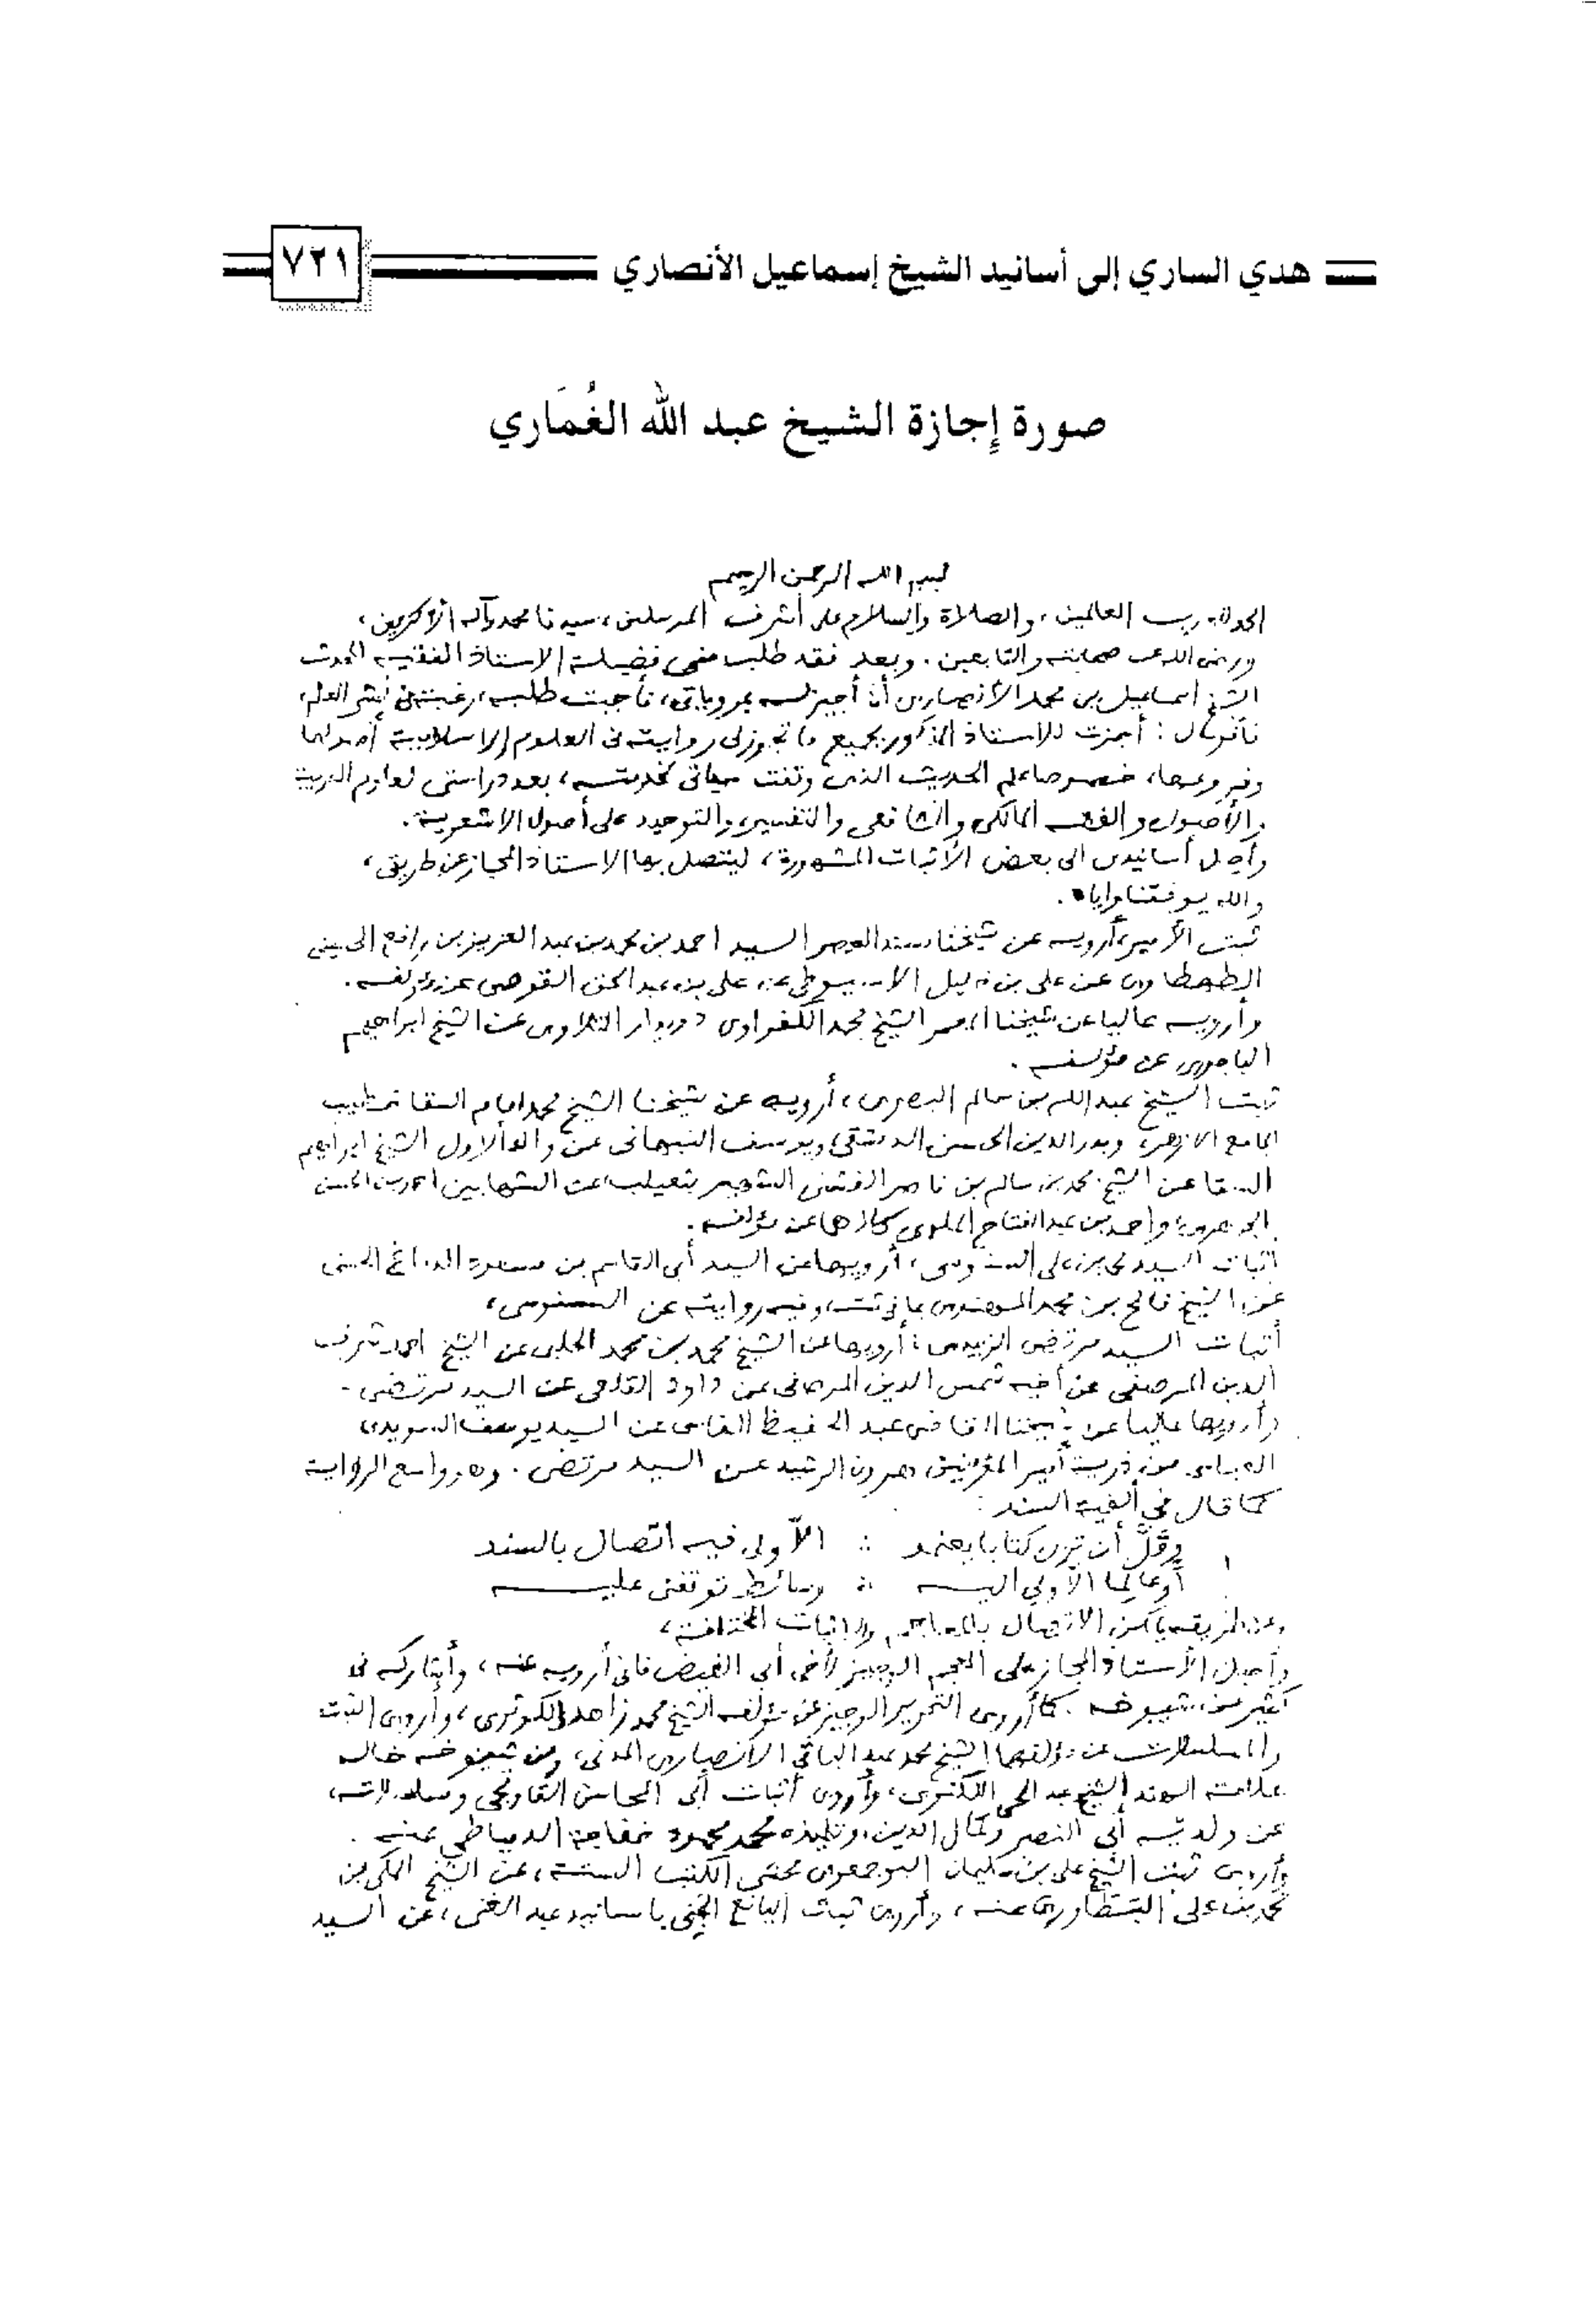 هدي الساري إلى أسانيد الشيخ إسماعيل الأنصاري
٧٢١
صورة إجازة الشيخ عبد الله الغُمَاري
بسم الله الرحمن الرحيم
الحمد لله رب العالمين، والصلاة والسلام على أشرف المرسلين، سيدنا محمد وآله الأكرمين،
ورضى الله عن صحابته والتابعين. وبعد فقد طلب منى فضيلة الاستاذ الفقيه المحدث
الشيخ اسماعيل بن محمد الأنصارى أن أجيز له بمروياتى، فأجبت طلبه، رغبة فى نشر العلم،
فأقول: أجزت للاستاذ المذكور بجميع ما تجوز لى روايته فى العلوم الاسلامية أصولها
وفروعها، خصوصا علم الحديث الذى وقفت حياتى لخدمته، بعد دراستى لعلوم العربية
والأصول والفقه المالكى والشافعى والتفسير، والتوحيد على أصول الاشعرية.
وأصل أسانيدى الى بعض الأثبات المشهورة، ليتصل بها الاستاذ المجاز عن طريقى،
والله يوفقنا وإياه.
ثبت الأمير، أرويه عن شيخنا مسند العصر السيد احمد بن محمد بن عبد العزيز بن رافع الحسينى
الطهطاوى عن على بن الاسيوطى عن على بن عبد الحق القوصى عن مؤلفه.
وأرويه عاليا عن شيخنا المعمر الشيخ محمد دويدار الكفراوى التلاوى عن الشيخ ابراهيم
الباجورى عن مؤلفه.
ثبت الشيخ عبد الله بن سالم البصرى، أرويه عن شيخنا الشيخ محمد امام السقا خطيب
الجامع الازهر، وبدر الدين الحسنى الدمشقى ويوسف النبهانى عن والد الاول الشيخ ابراهيم
السقا عن الشيخ محمد بن سالم بن ناصر الفشنى الشهير بثعيلب عن الشهابين احمد بن الحسن
الجوهرى، واحمد بن عبد الفتاح الملوى كلاهما عن مؤلفه.
أثبات السيد محمد بن على السنوسى، أرويها عن السيد أبى القاسم بن مسعود الدباغ الحسنى
عن الشيخ فالح بن محمد المهنوى بما فى ثبته، وفيه روايته عن السنوسى،
أثبات السيد مرتضى الزبيدى: أرويها عن الشيخ محمد بن محمد الحلبى عن الشيخ احمد شرف
الدين المرصفى عن أخيه شمس الدين المرصفى عن داود القلعى عن السيد مرتضى.
وأرويها عاليا عن شيخنا القاضى عبد الحفيظ الفاسى عن السيد يوسف السويدى
العباسى من ذرية أمير المؤمنين هرون الرشيد عن السيد مرتضى. وهو واسع الرواية
كما قال فى ألفية السند:
وقلَّ أن ترى كتابا يعتمد ∴ إلا ولى فيه اتصال بالسند
أو عالما إلا ولى اليه ∴ وسائط توقفنى عليه
وعن طريقه يمكن الاتصال بالمعاجم والاثبات المختلفة،
وأحيل الأستاذ المجاز على المعجم الوجيز لأخى أبى الفيض فانى أرويه عنه، وأشاركه فى
كثير من شيوخه. كما أروى التحرير الوجيز عن مؤلفه الشيخ محمد زاهد الكوثرى، وأروى الثبت
والمسلسلات عن مؤلفهما الشيخ محمد عبد الباقى الأنصارى المدنى، ومن شيوخه خاله
علامة الهند الشيخ عبد الحى اللكنوى، وأروى أثبات أبى المحاسن القاوقجى ومسلسلاته،
عن ولديه أبى النصر وكمال الدين، وتلميذه محمد محمود خفاجة الدمياطى عنه.
وأروى ثبت الشيخ على بن سليمان البوجمعوى محشى الكتب الستة، عن الشيخ المكى بن
محمد بن على عنه، وأروى ثبت اليانع الجنى بأسانيد عبد الغنى، عن السيد